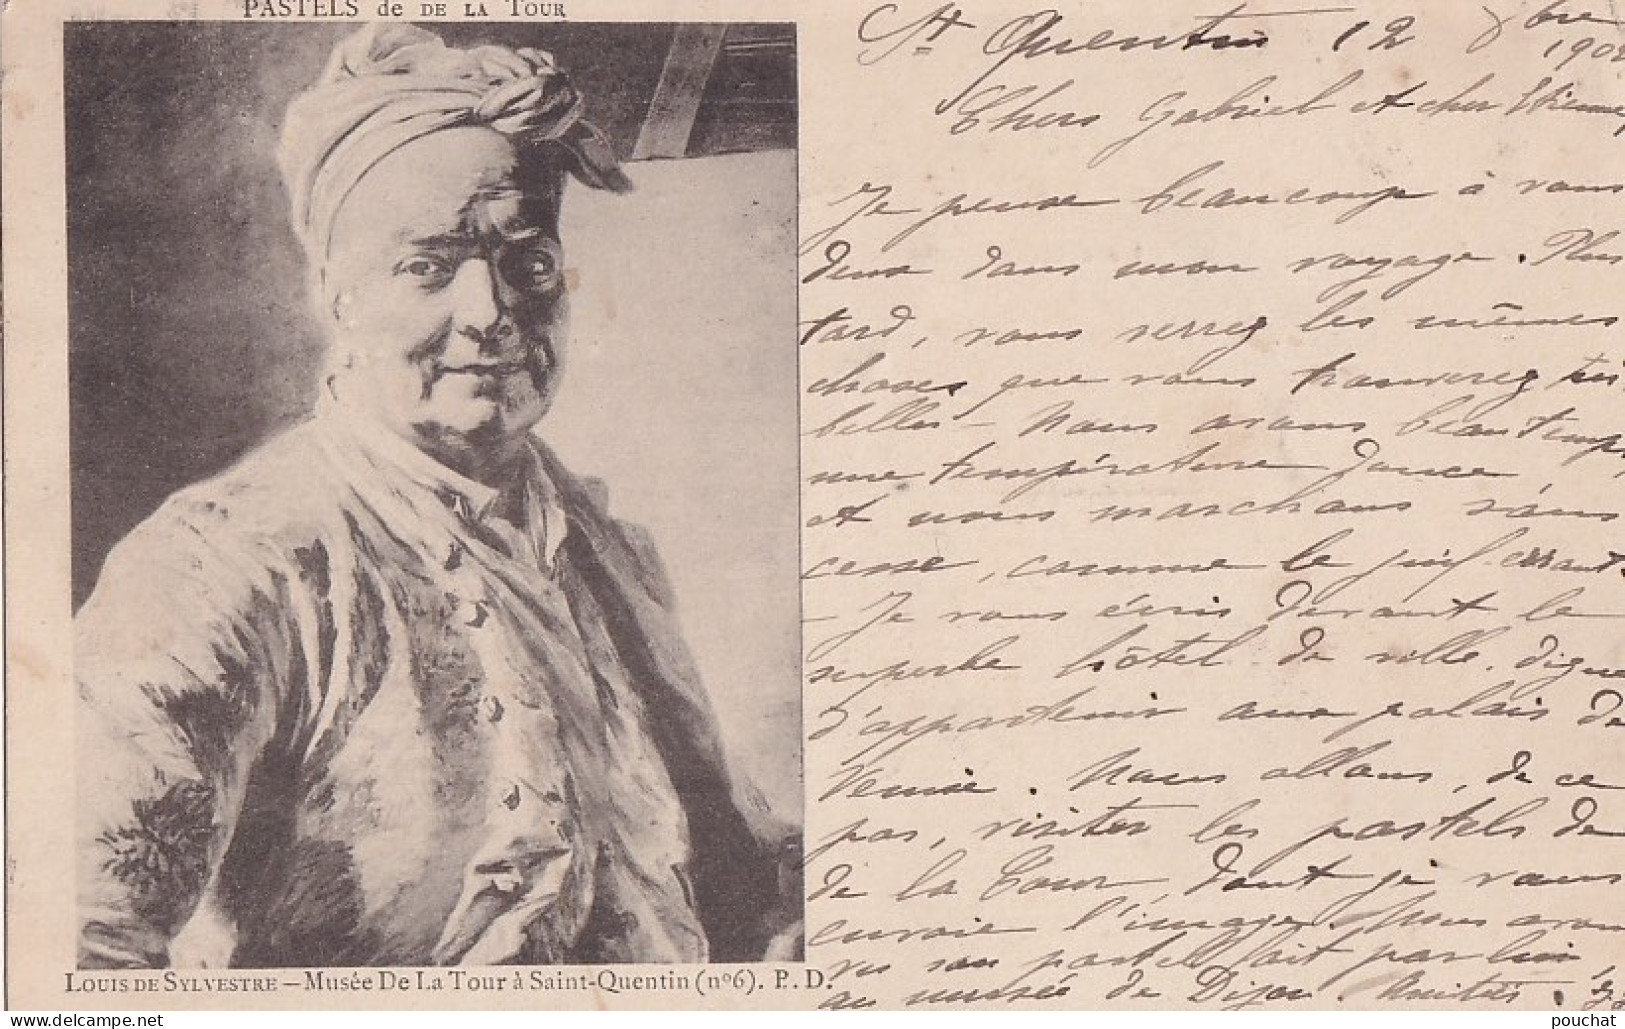 PASTELS de DE LA TOUR
St Quentin 12 8bre
190
Chers Gabriel et cher Etienne,
Je pense beaucoup à vous
deux dans mon voyage. Plus
tard, vous verrez les mêmes
choses que vous trouverez très
belles - Nous avons beau temps
une température douce,
et nous marchons sans
cesse, comme le juif errant.
- Je vous écris devant le
superbe hôtel de ville, digne
d'appartenir aux palais de
Venise. Nous allons, de ce
pas, visiter les pastels de
de la Tour, dont je vous
envoie l'image. Nous avons
vu son pastel fait par lui
au musée de Dijon. Amitiés.
LOUIS DE SYLVESTRE – Musée De La Tour à Saint-Quentin (n°6). P. D.
www.delcampe.net
pouchat